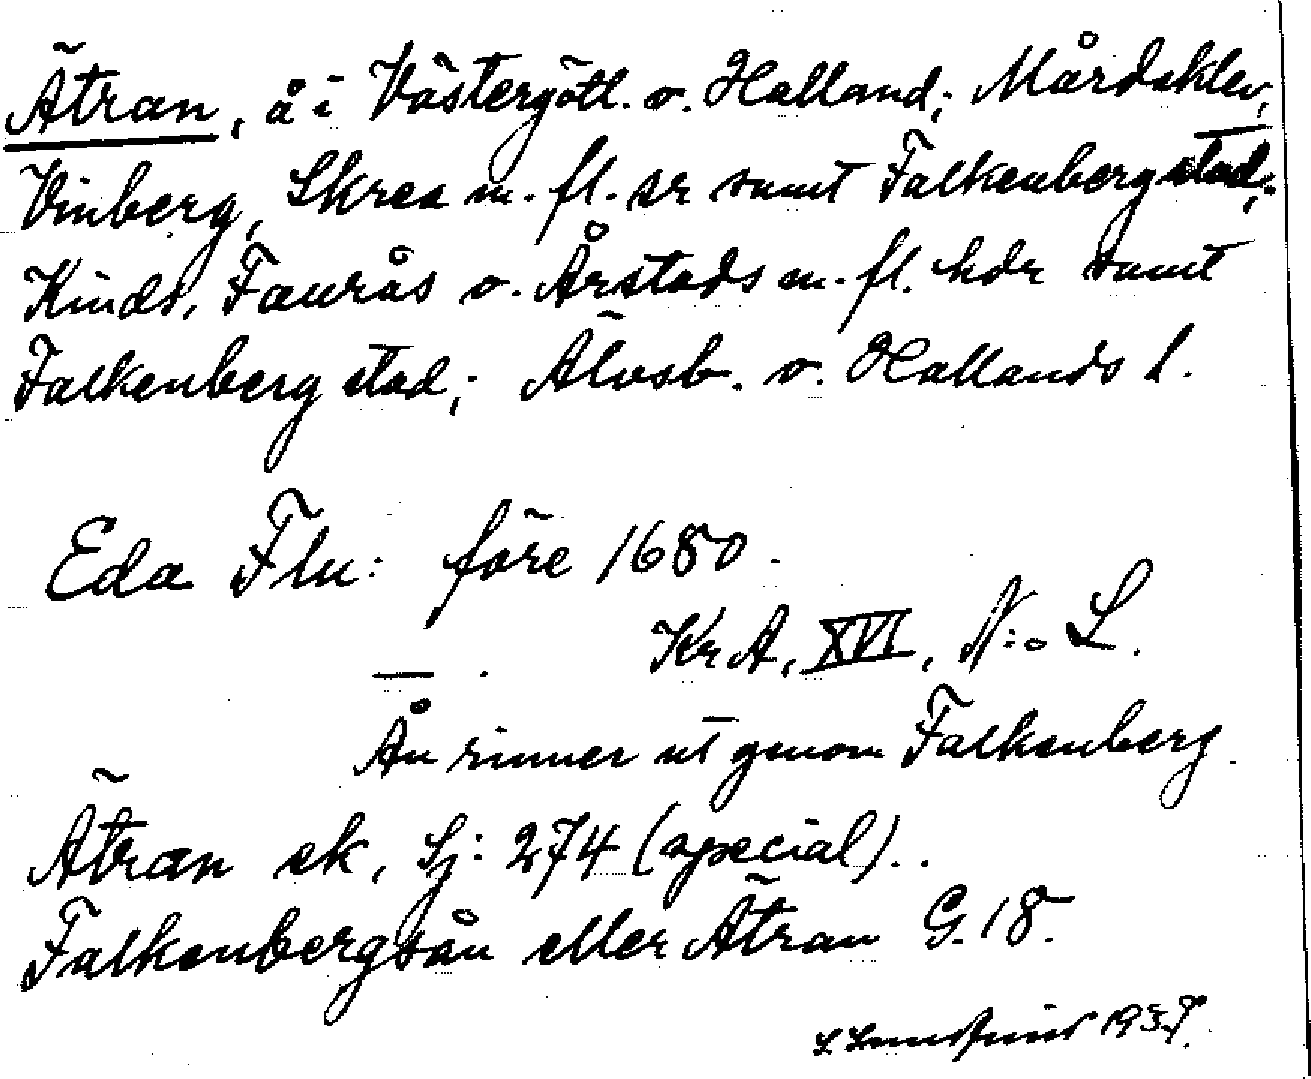 Ätran, å i Västergötl. o. Halland; Mårdaklev,
Vinberg, Skrea m. fl. sr samt Falkenberg stad;
Kinds, Faurås o. Årstads m. fl. hdr samt
Falkenberg stad; Älvsb. o. Hallands l.
Eda Flu: före 1680.
KrA, XVI, N:o L.
— .
Ån rinner ut genom Falkenberg.
Ätran ek, Sj: 274 (special)..
Falkenbergsån eller Ätran G. 18.